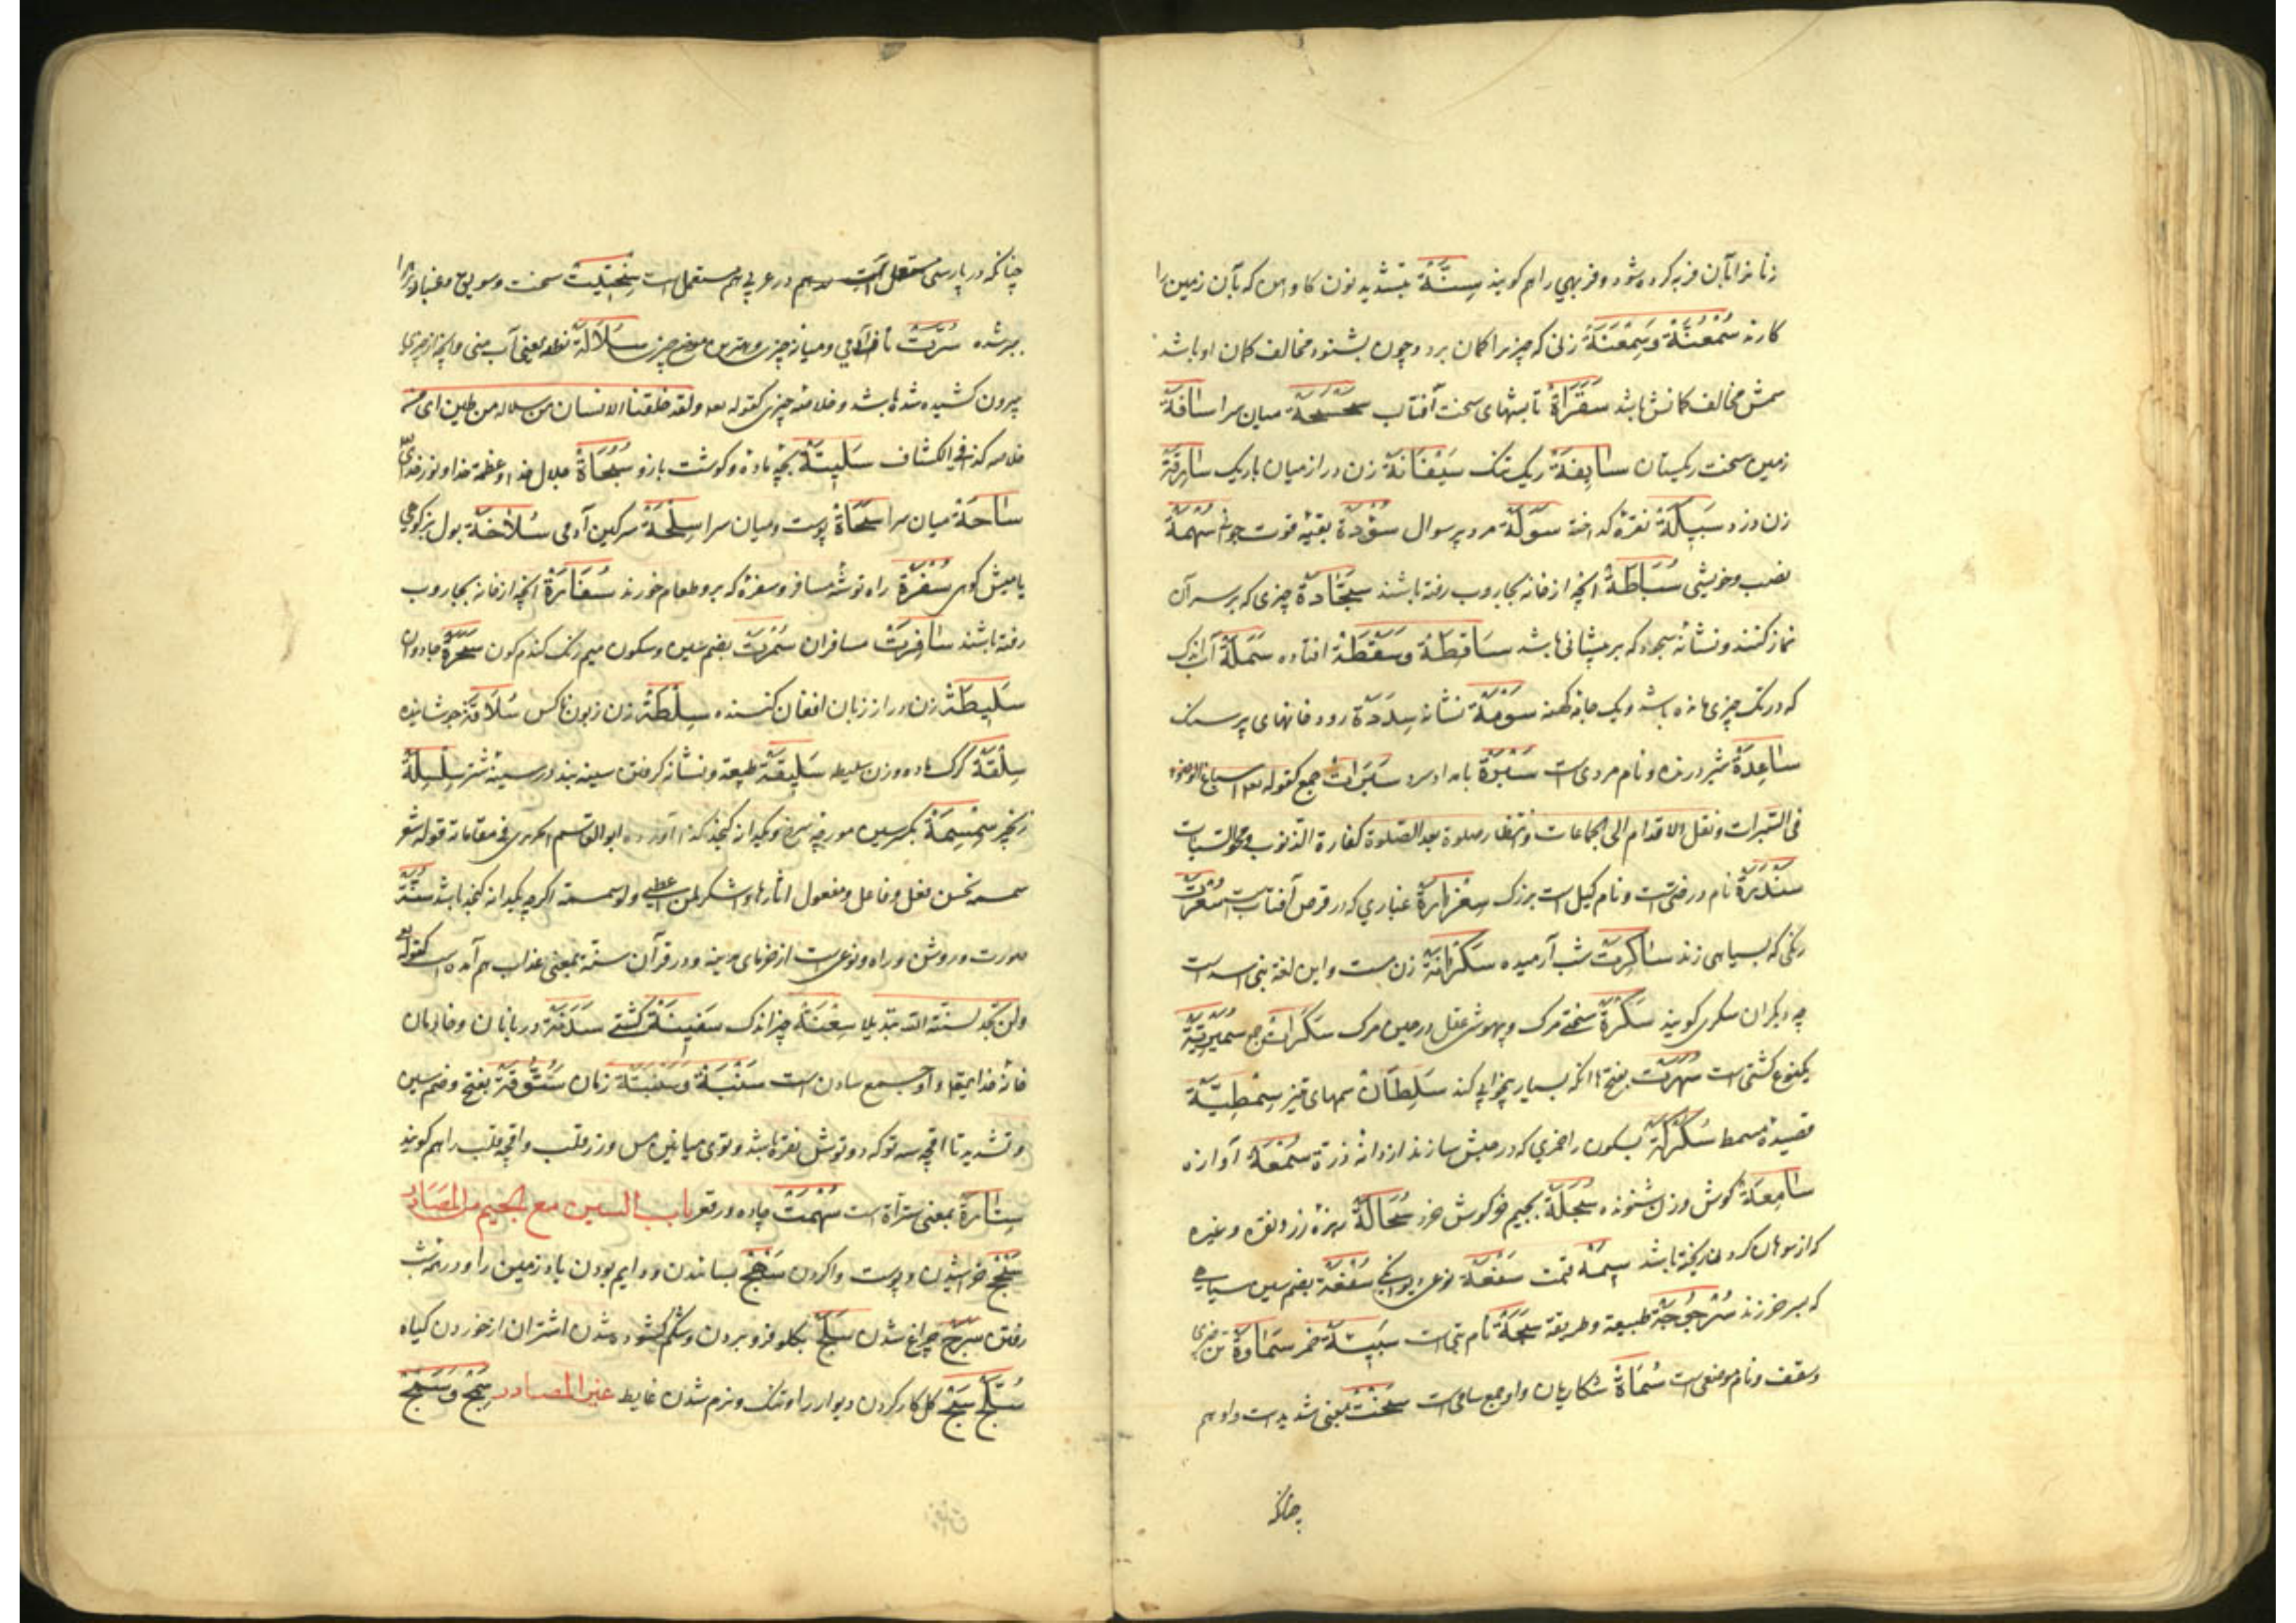 زنانرا بآن فربه کرده شود و فربهی را هم کویند سنّة بتشدید نون کاو اهن که بآن زمین را
کارند سُمْعُنَّة وسِمْعَنَة زنی که چیزیرا کمان برد و چون بشنود مخالف کمان او باشد
مخالف کمانش باشد سَقَرَاة تابشهای سخت آفتاب سَحْسَحَة میان سرا سافة
زمین سخت ریکستان سایفة ریک تنک سَیْفَانَة زن دراز میان باریک سارقة
زن دزد سَبِیکَة نقره کداخته سَوَلَة مرد پرسوال سُؤْدَة بقیه قوت جوانی سُهْمَة
نصیب و خویشی سُبَاطَة انچه از خانه بجاروب رفته باشند سَجَّادَة چیزی که بر سر آن
نماز کنند و نشانه سجود که بر پیشانی باشد سَاقِطَة وسَقَطَة افتاده سَمَلَة آب اندک
که در تک چیزی مانده باشد و یک جامه کهنه سَوْمَة نشانه سِدَدَة رودخانهای پر سنک
سَاعِدَة شیر درنده و نام مردی است سَبْرَة بامداد سرد سَبَرَات جمع کقوله اسباغ الوضوء
فی السّبرات ونقل الاقدام الی الجماعات وانتظار صلوة بعد الصّلوة کفارة الذنوب
سَنْدَرَة نام درختی است و نام کیل است بزرک غباری که در قرص آفتاب است سُمْرَت
رنکی که بسیاهی زند سَاکِرَت شب آرمیده سَکْرَانَة زن مست و این لغة بنی اسد است
چه دیکران سکری کویند سَکْرَة سختی مرک و بیهوشی عقل در حین مرک سَکَرَات ج
یکنوع کشتی است سُهَرَت بفتح ها انکه بسیار بیخوابی کند سَلِطَات سمهای تیز سِمْطِیَّة
قصیده مسمط سُکْرُکَة بسکون را خمری که در حبش سازند از دانه ذرة سُمْعَة آوازه
سَامِعَة کوش و زن شنونده سُجَلَة بجیم خرکوش خرد سُحَالَة ریزه زر و نقره وغیره
که از سوهان کردن ریخته باشد سِیمَة قیمت سَفْعَة نوعی دیوانکی سُفْعَة بضم سین سیاهی
که بسرخی زند سُرْجُوجَة طبیعة و طریقة سَجَّة نام بتی است سَبِیئَة خمر سَمَاوَة
وسقف و نام موضعی است سُمَاة شکاریان و او جمع سامی است سَخْت بمعنی شدید است و او هم
چنانکه
چنانکه در پارسی مستعمل است هم در عربی هم مستعمل است سِخْتِیت سخت و سویق و غبار
برشده سُرَّت ناف آدمی و میانه چیزی و بهترین موضع چیزی سُلَالَة نطفه یعنی آب منی و انچه از چیزی
بیرون کشیده شده باشد و خلاصه چیزی کقوله تعه ولقد خلقنا الانسان من سلالة من طین ای من
خلاصه کذا فی الکشاف سَلِیلَة بچه ماده و کوشت بازو سُبُحَاة جلال خدا و عظمة خدا و نور خدای
سَاحَة میان سرا سَحَاة پوست و میان سرا سِلْحَة سرکین آدمی سُلَاخَة بول بز کوهی
یا میش کوهی سُفْرَة راه توشه مسافر و سفره که برو طعام خورند سُفَارَة انچه از خانه بجاروب
رفته باشند سَافِرَت مسافران سُمْرَت بضم سین وسکون میم رنک کندم کون سَحَرَة جادوان
سَلِیطَة زن دراز زبان افغان کننده سِلْطَة زن زبون ناکس سُلَاقَة جوشانیده
سِلْقَة کرک ماده و زن سلیطه سَلِیقَة طبیعة و نشانه کرفتن سینه بند در سینه شتر سِلْسِلَة
زنجیر سِمْسِمَة بکسر سین مورچه سرخ و یکدانه کنجد کذا اورده ابوالقاسم الحریری فی مقاماته قوله شعر
سم سمة تحسن فعل و فاعل و مفعول اثارها واشکر لمن اعطی ولو سمسمة اکرچه یکدانه کنجد باشد سُنَّة
صورت و روش و راه و نوعی است از خرمای مدینه و در قرآن سنّة بمعنی عذاب هم آمده است کقوله تعه
ولن تجد لسنّة اللّه تبدیلا سَعْنَة چیز اندک سَفِینَة کشتی سَدَنَة دربانان و خادمان
خانه خدایتعالی و او جمع سادن است سَنْبَة وسَنْبَتَة زمان سَتُّوقَة بفتح و ضم سین
و تشدید تا اقچه سه توکه دو تویش نقره باشد و توی میانین مس و زر قلب و اقچه قلب را هم کویند
سِتَارَة بمعنی سترة است سُهْمَت باب السین مع الجیم من المصادر
سَحْج خراشیدن و پوست واکردن سَهْج بسائیدن و دایم بودن باد زمین را و در همه شب
رفتن سَرَج چراغ شدن سَلْج بکلو فرو بردن و شکم کشوده شدن اشتران از خوردن کیاه
سُلَّج سَجّ کل کار کردن دیوار را و تنک و نرم شدن غایط غیر المصادر